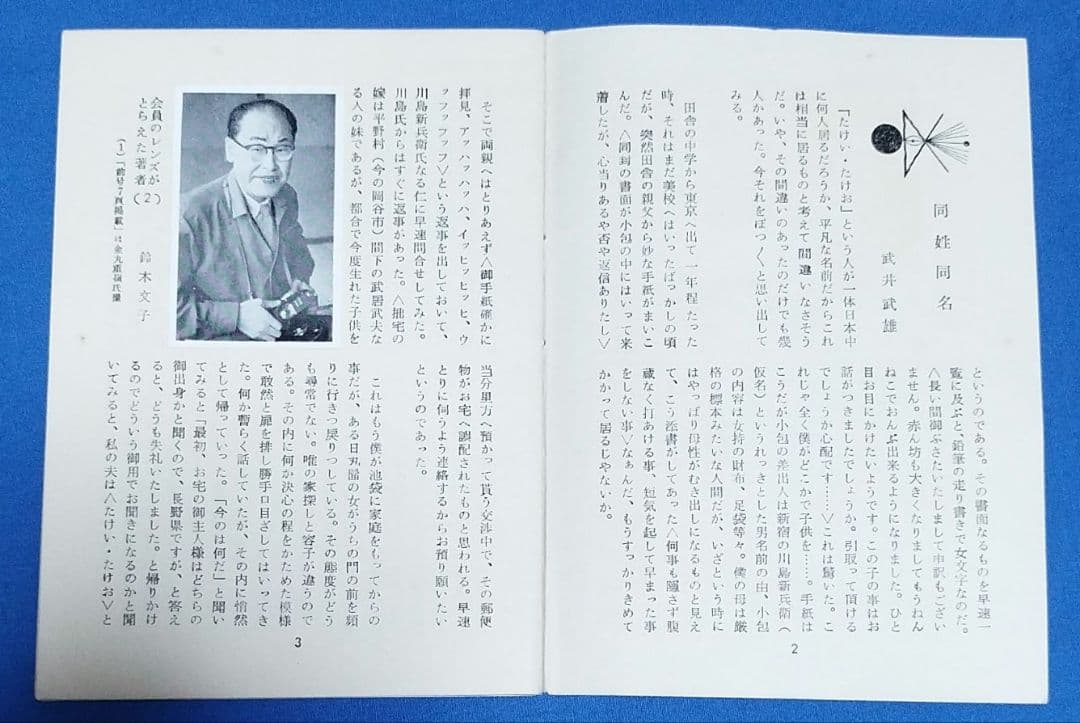 同姓同名
武井武雄
「たけい・たけお」という人が一体日本中
に何人居るだろうか、平凡な名前だからこれ
は相当に居るものと考えて間違いなさそう
だ。いや、その間違いのあったのだけでも幾
人かあった。今それをぽつ〱と思い出して
みる。
田舎の中学から東京へ出て一年程たった
時、それはまだ美校へはいったばっかしの頃
だが、突然田舎の親父から妙な手紙がまいこ
んだ。〈同封の書面が小包の中にはいって来
着したが、心当りあるや否や返信ありたし〉
というのである。その書面なるものを早速一
覧に及ぶと、鉛筆の走り書きで女文字なのだ。
〈長い間御ぶさたいたしまして申訳もござい
ません。赤ん坊も大きくなりましてもうねん
ねこでおんぶ出来るようになりました。ひと
目お目にかけたいようです。この子の事はお
話がつきましたでしょうか。引取って頂ける
でしょうか心配です……〉これは驚いた。こ
れじゃ全く僕がどこかで子供を……。手紙は
こうだが小包の差出人は新宿の川島新兵衛（
仮名）というれっきとした男名前の由、小包
の内容は女持の財布、足袋等々。僕の母は厳
格の標本みたいな人間だが、いざという時に
はやっぱり母性がむき出しになるものと見え
て、こう添書がしてあった〈何事も隠さず腹
蔵なく打あける事、短気を起して早まった事
をしない事〉なぁんだ、もうすっかりきめて
かかって居るじゃないか。
2
そこで両親へはとりあえず〈御手紙確かに
拝見、アッハッハッハ、イッヒッヒッヒ、ウ
ッフッフッフ〉という返事を出しておいて、
川島新兵衛氏なる仁に早速問合せしてみた。
川島氏からはすぐに返事があった。〈拙宅の
嫁は平野村（今の岡谷市）間下の武居武夫な
る人の妹であるが、都合で今度生れた子供を
会員のレンズが
とらえた著者（2）
鈴木文子
（1）「前号7頁掲載」は金丸重嶺氏撮
当分里方へ預かって貰う交渉中で、その郵便
物がお宅へ誤配されたものと思われる。早速
とりに伺うよう連絡するからお預り願いたい
というのであった。
これはもう僕が池袋に家庭をもってからの
事だが、ある日丸髷の女がうちの門の前を頻
りに行きつ戻りつしている。その態度がどう
も尋常でない。唯の家探しと容子が違うので
ある。その内に何か決心の程をかためた模様
で敢然と扉を排し勝手口目ざしてはいってき
た。何か暫らく話していたが、その内に悄然
として帰っていった。「今のは何だ」と聞い
てみると「最初、お宅の御主人様はどちらの
御出身かと聞くので、長野県ですが、と答え
ると、どうも失礼いたしました。と帰りかけ
るのでどういう御用でお聞きになるのかと聞
いてみると、私の夫は〈たけい・たけお〉と
3